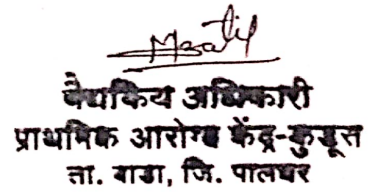 वैद्यकिय अधिकारी
प्राथमिक आरोग्य केंद्र-कुडूस
ता. वाडा, जि. पालघर